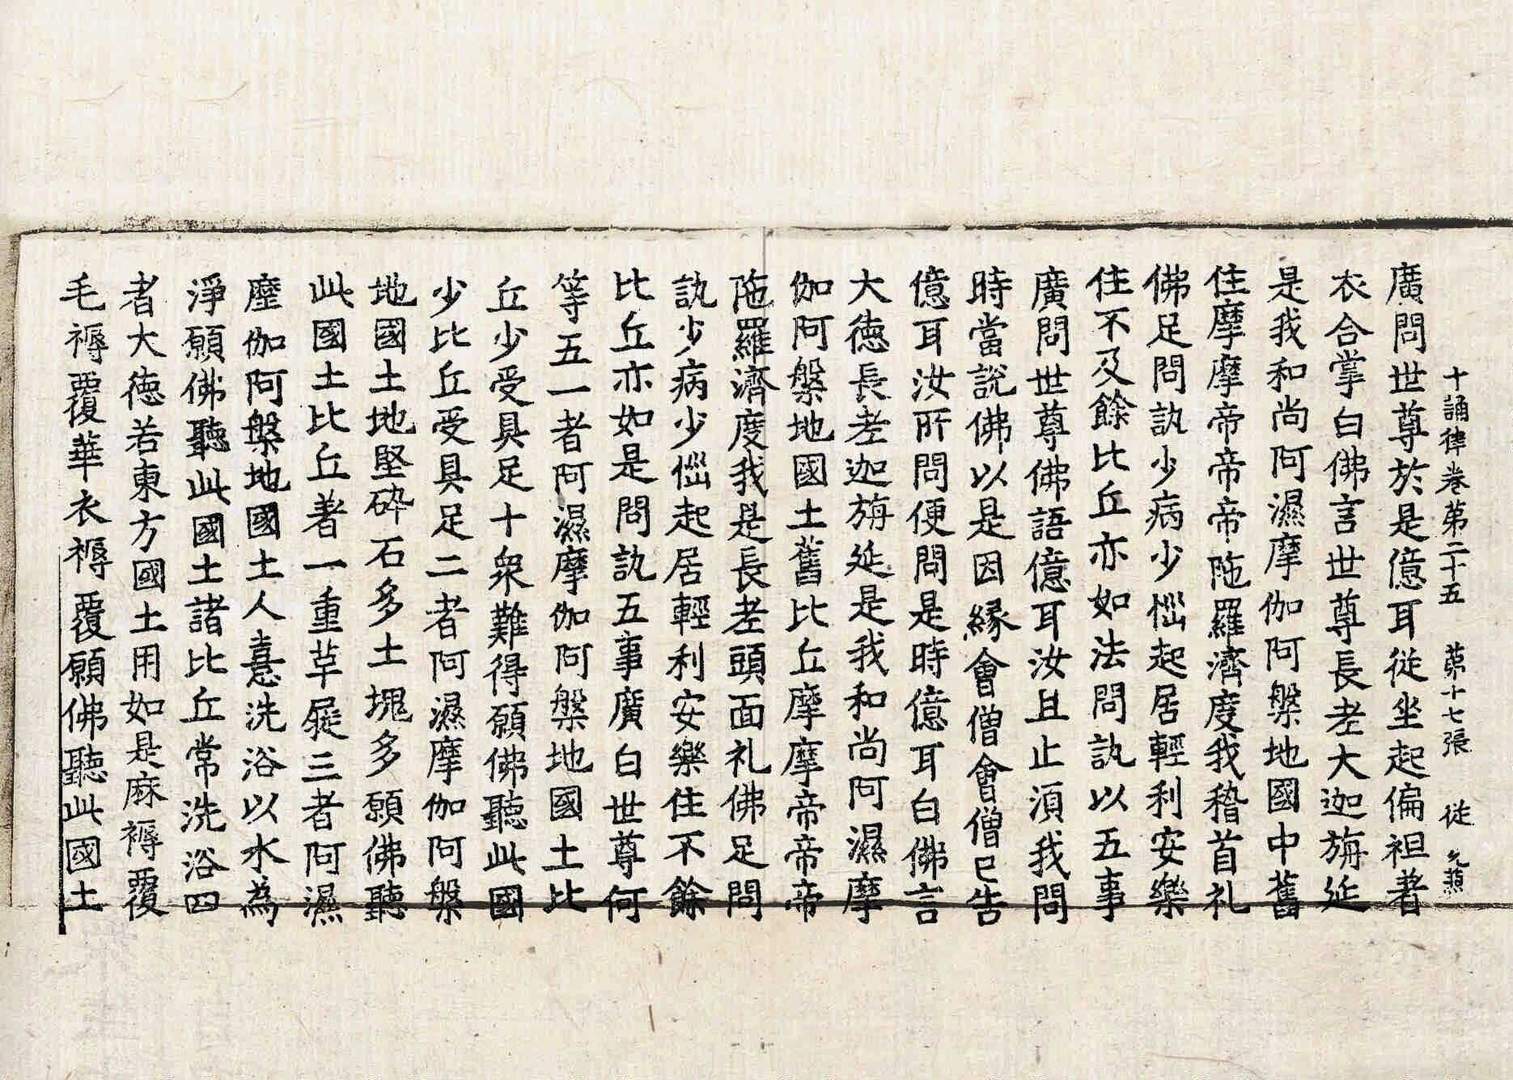 十誦律卷第二十五 第十七張 従
廣問世尊於是億耳従坐起偏袒著
衣合掌白佛言世尊長老大迦旃延
是我和尚阿濕摩伽阿槃地國中舊
住摩摩帝帝帝陁羅濟度我稽首礼
佛足問訊少病少惱起居輕利安樂
住不及餘比丘亦如法問訊以五事
廣問世尊佛語億耳汝且止湏我問
時當說佛以是因緣會僧會僧已告
億耳汝所問便問是時億耳白佛言
大德長老迦旃延是我和尚阿濕摩
伽阿槃地國土舊比丘摩摩帝帝帝
陁羅濟度我是長老頭面礼佛足問
訊少病少惱起居輕利安樂住不餘
比丘亦如是問訊五事廣白世尊何
等五一者阿濕摩伽阿槃地國土比
丘少受具足十衆難得願佛聽此國
少比丘受具足二者阿濕摩伽阿槃
地國土地堅碎石多土塊多願佛聽
此國土比丘著一重革屣三者阿濕
摩伽阿槃地國土人憙洗浴以水為
淨願佛聽此國土諸比丘常洗浴四
者大德若東方國土用如是麻褥覆
毛褥覆華衣褥覆願佛聽此國土